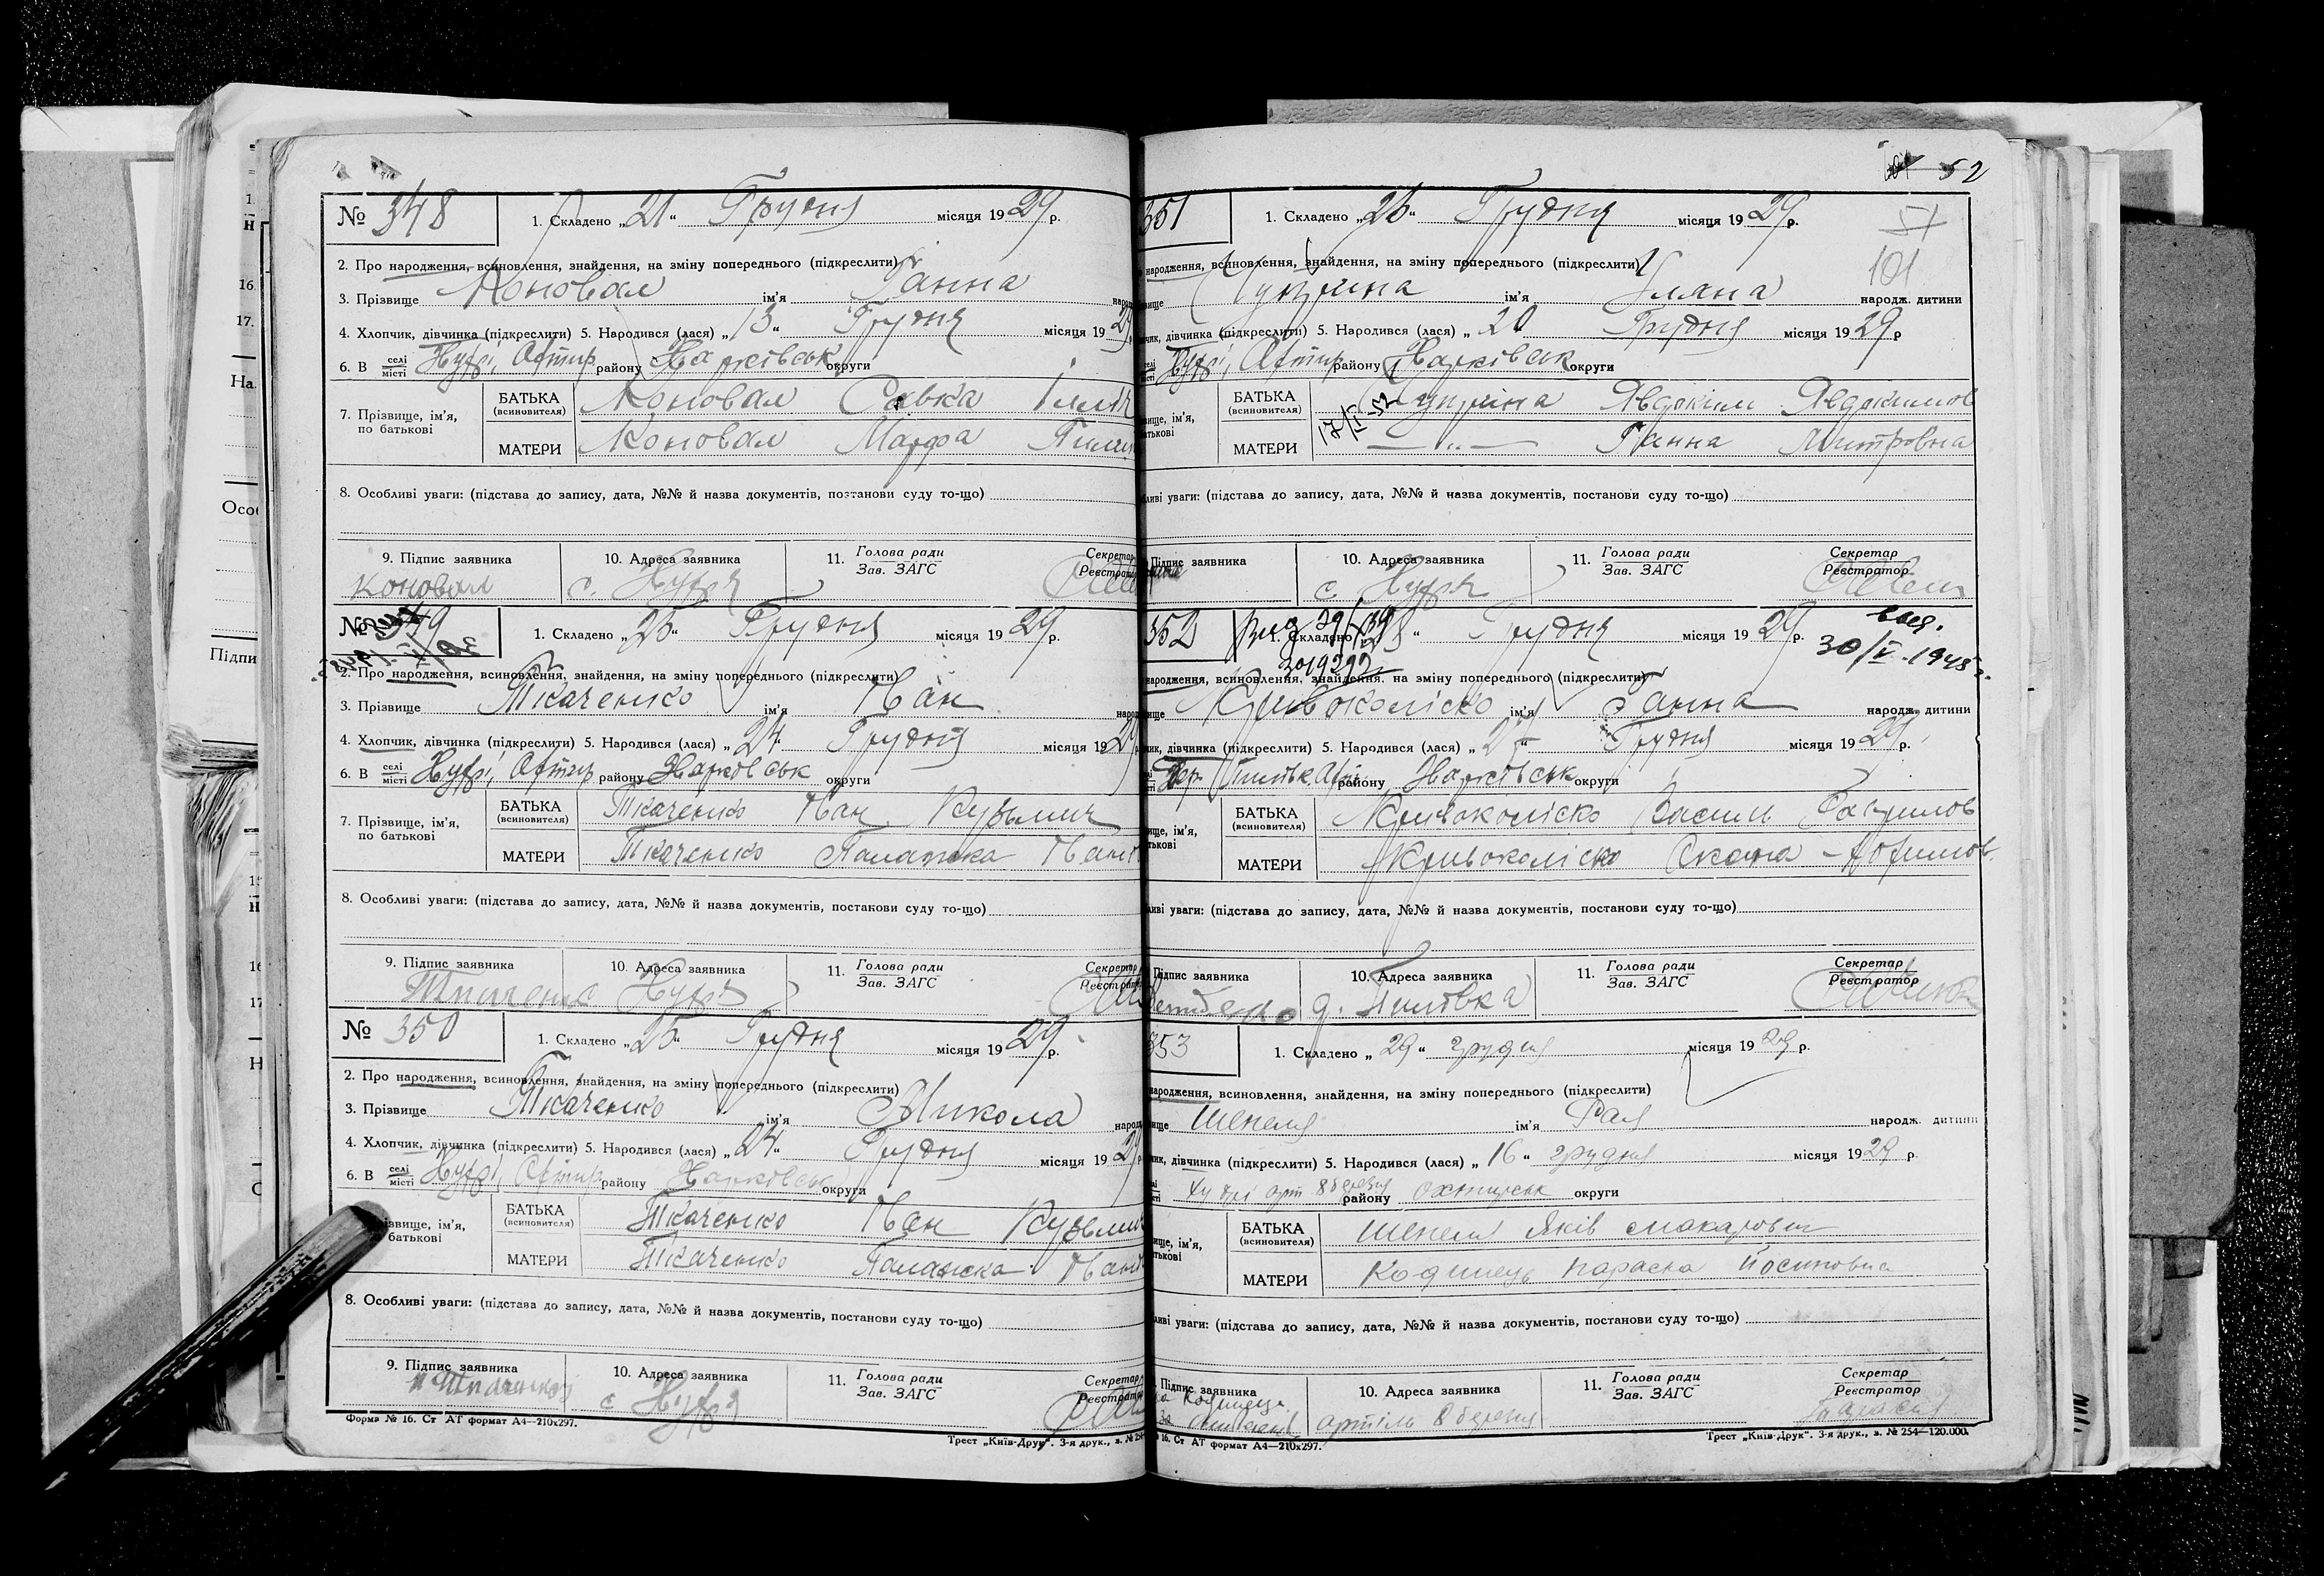 № 348
1. Складено „21“ Грудня місяця 1929 р.
2. Про народження, всиновлення, знайдення, на зміну попереднього (підкреслити)
3. Прізвище Коновал ім'я Ганна народ
4. Хлопчик, дівчинка (підкреслити) 5. Народився (лася) „13“ Грудня місяця 1929
6. В селі місті Хухрі, Охтир району Харківськ округи
7. Прізвище, ім'я, по батькові
БАТЬКА (всиновителя) Коновал Савка Ілліч
МАТЕРИ Коновал Марфа
8. Особливі уваги: (підстава до запису, дата, №№ й назва документів, постанови суду то-що)
9. Підпис заявника 10. Адреса заявника 11. Голова ради Зав. ЗАГС Секретар Реєстратор
Коновал с. Хухря
№ 349
1. Складено „25“ Грудня місяця 1929 р.
2. Про народження, всиновлення, знайдення, на зміну попереднього (підкреслити)
3. Прізвище Ткаченко ім'я Іван народ
4. Хлопчик, дівчинка (підкреслити) 5. Народився (лася) „24“ Грудня місяця 1929
6. В селі місті Хухрі, Охтир району Харківськ округи
7. Прізвище, ім'я, по батькові
БАТЬКА (всиновителя) Ткаченко Іван Кузьмич
МАТЕРИ Ткаченко Палажка Іван
8. Особливі уваги: (підстава до запису, дата, №№ й назва документів, постанови суду то-що)
9. Підпис заявника 10. Адреса заявника 11. Голова ради Зав. ЗАГС Секретар Реєстратор
Ткаченко Хухрі
№ 350
1. Складено „25“ Грудня місяця 1929 р.
2. Про народження, всиновлення, знайдення, на зміну попереднього (підкреслити)
3. Прізвище Ткаченко ім'я Микола народ
4. Хлопчик, дівчинка (підкреслити) 5. Народився (лася) „24“ Грудня місяця 1929
6. В селі місті Хухрі, Охтир району Харківськ округи
ізвище, ім'я, батькові
БАТЬКА (всиновителя) Ткаченко Іван Кузьмич
МАТЕРИ Ткаченко Палажка Іван
8. Особливі уваги: (підстава до запису, дата, №№ й назва документів, постанови суду то-що)
9. Підпис заявника 10. Адреса заявника 11. Голова ради Зав. ЗАГС Секретар Реєстратор
Ткаченко с Хухря
Форма № 16. Ст АТ формат А4—210x297.
Трест „Київ-Друк“. 3-я друк., з. № 25
52
101
351
1. Складено „25“ Грудня місяця 1929 р.
народження, всиновлення, знайдення, на зміну попереднього (підкреслити)
вище Чуприна ім'я Уляна народж. дитини
чик, дівчинка (підкреслити) 5. Народився (лася) „20 Грудня місяця 1929 р
Хухрі, Охтир району Харківськ округи
вище, ім'я, батькові
БАТЬКА (всиновителя) Чупріна Явдоким Явдокимов
17/І-52
МАТЕРИ —„— Ганна Митровна
ливі уваги: (підстава до запису, дата, №№ й назва документів, постанови суду то-що)
Підпис заявника 10. Адреса заявника 11. Голова ради Зав. ЗАГС Секретар Реєстратор
с. Хухря
352
1. Складено “ Грудня місяця 1929 р.
30/V-1948
3019292
народження, всиновлення, знайдення, на зміну попереднього (підкреслити)
вище Кривоколіско ім'я Ганна народж. дитини
чик, дівчинка (підкреслити) 5. Народився (лася) „27“ Грудня місяця 1929 р.
району Харківськ округи
вище, ім'я, тькові
БАТЬКА (всиновителя) Кривоколіско Василь Гаврилов
МАТЕРИ Кривоколіско
ливі уваги: (підстава до запису, дата, №№ й назва документів, постанови суду то-що)
Підпис заявника 10. Адреса заявника 11. Голова ради Зав. ЗАГС Секретар Реєстратор
353
1. Складено „29“ грудня місяця 1929 р.
народження, всиновлення, знайдення, на зміну попереднього (підкреслити)
вище Шепеля ім'я Рая народж. дитини
чик, дівчинка (підкреслити) 5. Народився (лася) „16“ грудня місяця 1929 р.
Хухрі арт 8 березня району Охтирськ округи
вище, ім'я, атькові
БАТЬКА (всиновителя) Шепеля Яків Макарович
МАТЕРИ Кодинець Параска Йосиповна
ливі уваги: (підстава до запису, дата, №№ й назва документів, постанови суду то-що)
Підпис заявника 10. Адреса заявника 11. Голова ради Зав. ЗАГС Секретар Реєстратор
за Кодинець
артіль 8 березня
16. Ст АТ формат А4—210x297.
Трест „Київ-Друк“. 3-я друк., з. № 254—120.000.